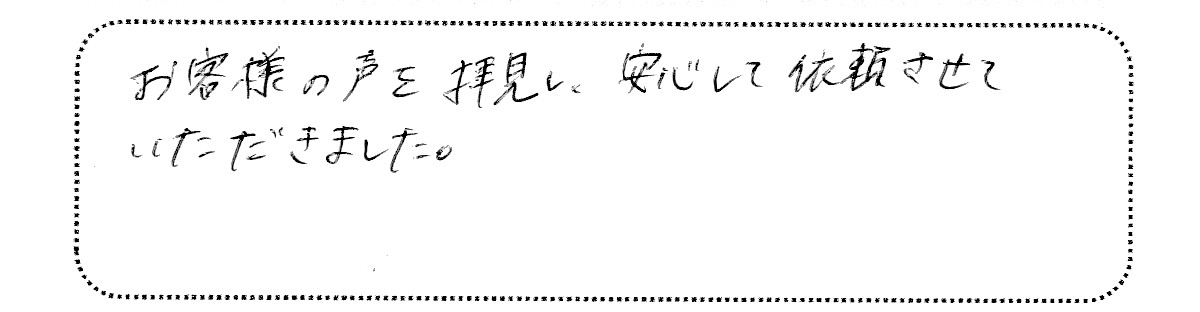 お客様の声を拝見し、安心して依頼させて
いただきました。